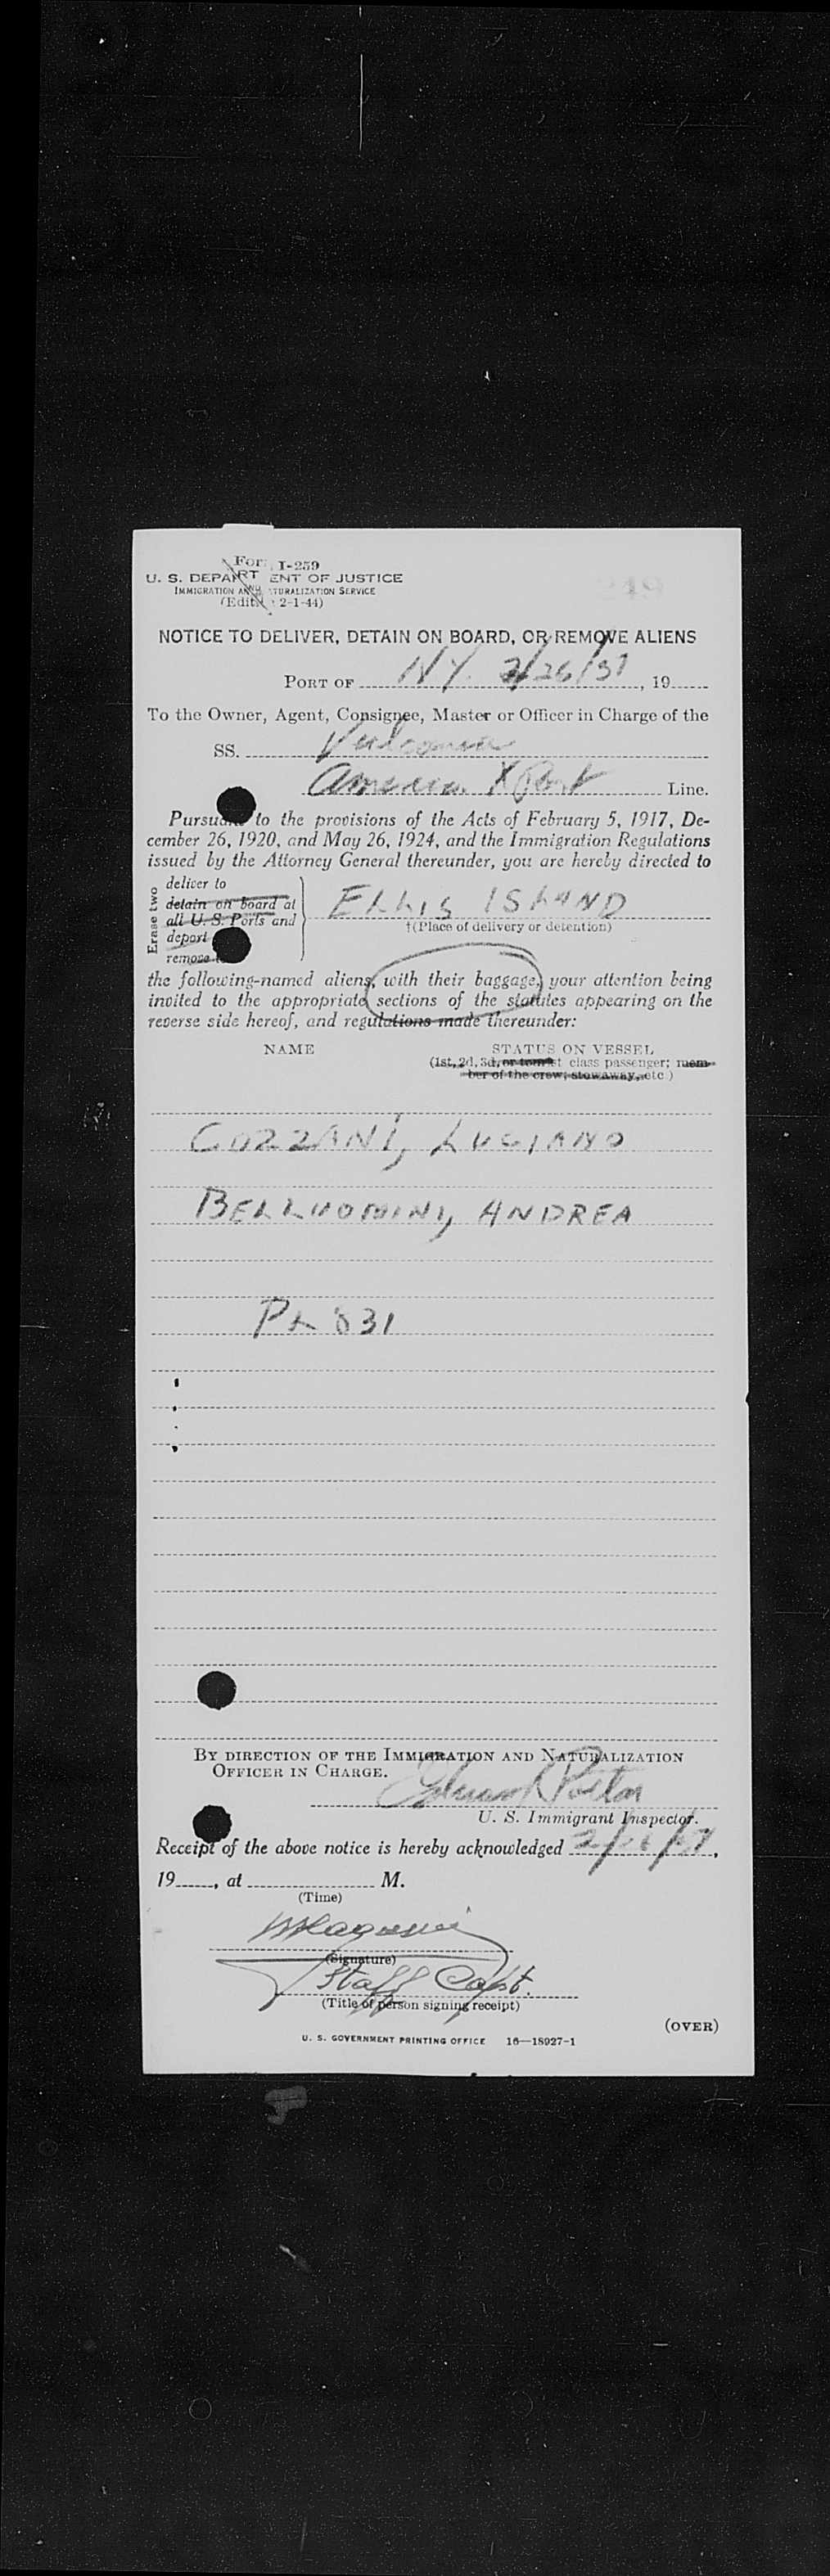 Form I-259
U. S. DEPARTMENT OF JUSTICE
IMMIGRATION AND NATURALIZATION SERVICE
(Edition 2-1-44)
NOTICE TO DELIVER, DETAIN ON BOARD, OR REMOVE ALIENS
PORT OF NY. 2/26/37, 19
To the Owner, Agent, Consignee, Master or Officer in Charge of the
SS. Vulcania
American XPort Line.
Pursuant to the provisions of the Acts of February 5, 1917, De-
cember 26, 1920, and May 26, 1924, and the Immigration Regulations
issued by the Attorney General thereunder, you are hereby directed to
Erase two
deliver to
detain on board at
all U. S. Ports and
deport
remove to
ELLIS ISLAND
†(Place of delivery or detention)
the following-named aliens, with their baggage, your attention being
invited to the appropriate sections of the statutes appearing on the
reverse side hereof, and regulations made thereunder:
NAME STATUS ON VESSEL
(1st, 2d, 3d, or tourist class passenger; mem-
ber of the crew; stowaway, etc.)
COZZANI, LUCIANO
BELLUOMINI, ANDREA
PL 831
BY DIRECTION OF THE IMMIGRATION AND NATURALIZATION
OFFICER IN CHARGE.
U. S. Immigrant Inspector.
Receipt of the above notice is hereby acknowledged
19, at M.
(Time)
(Signature)
Staff Capt.
(Title of person signing receipt)
(OVER)
U. S. GOVERNMENT PRINTING OFFICE 16—18927-1